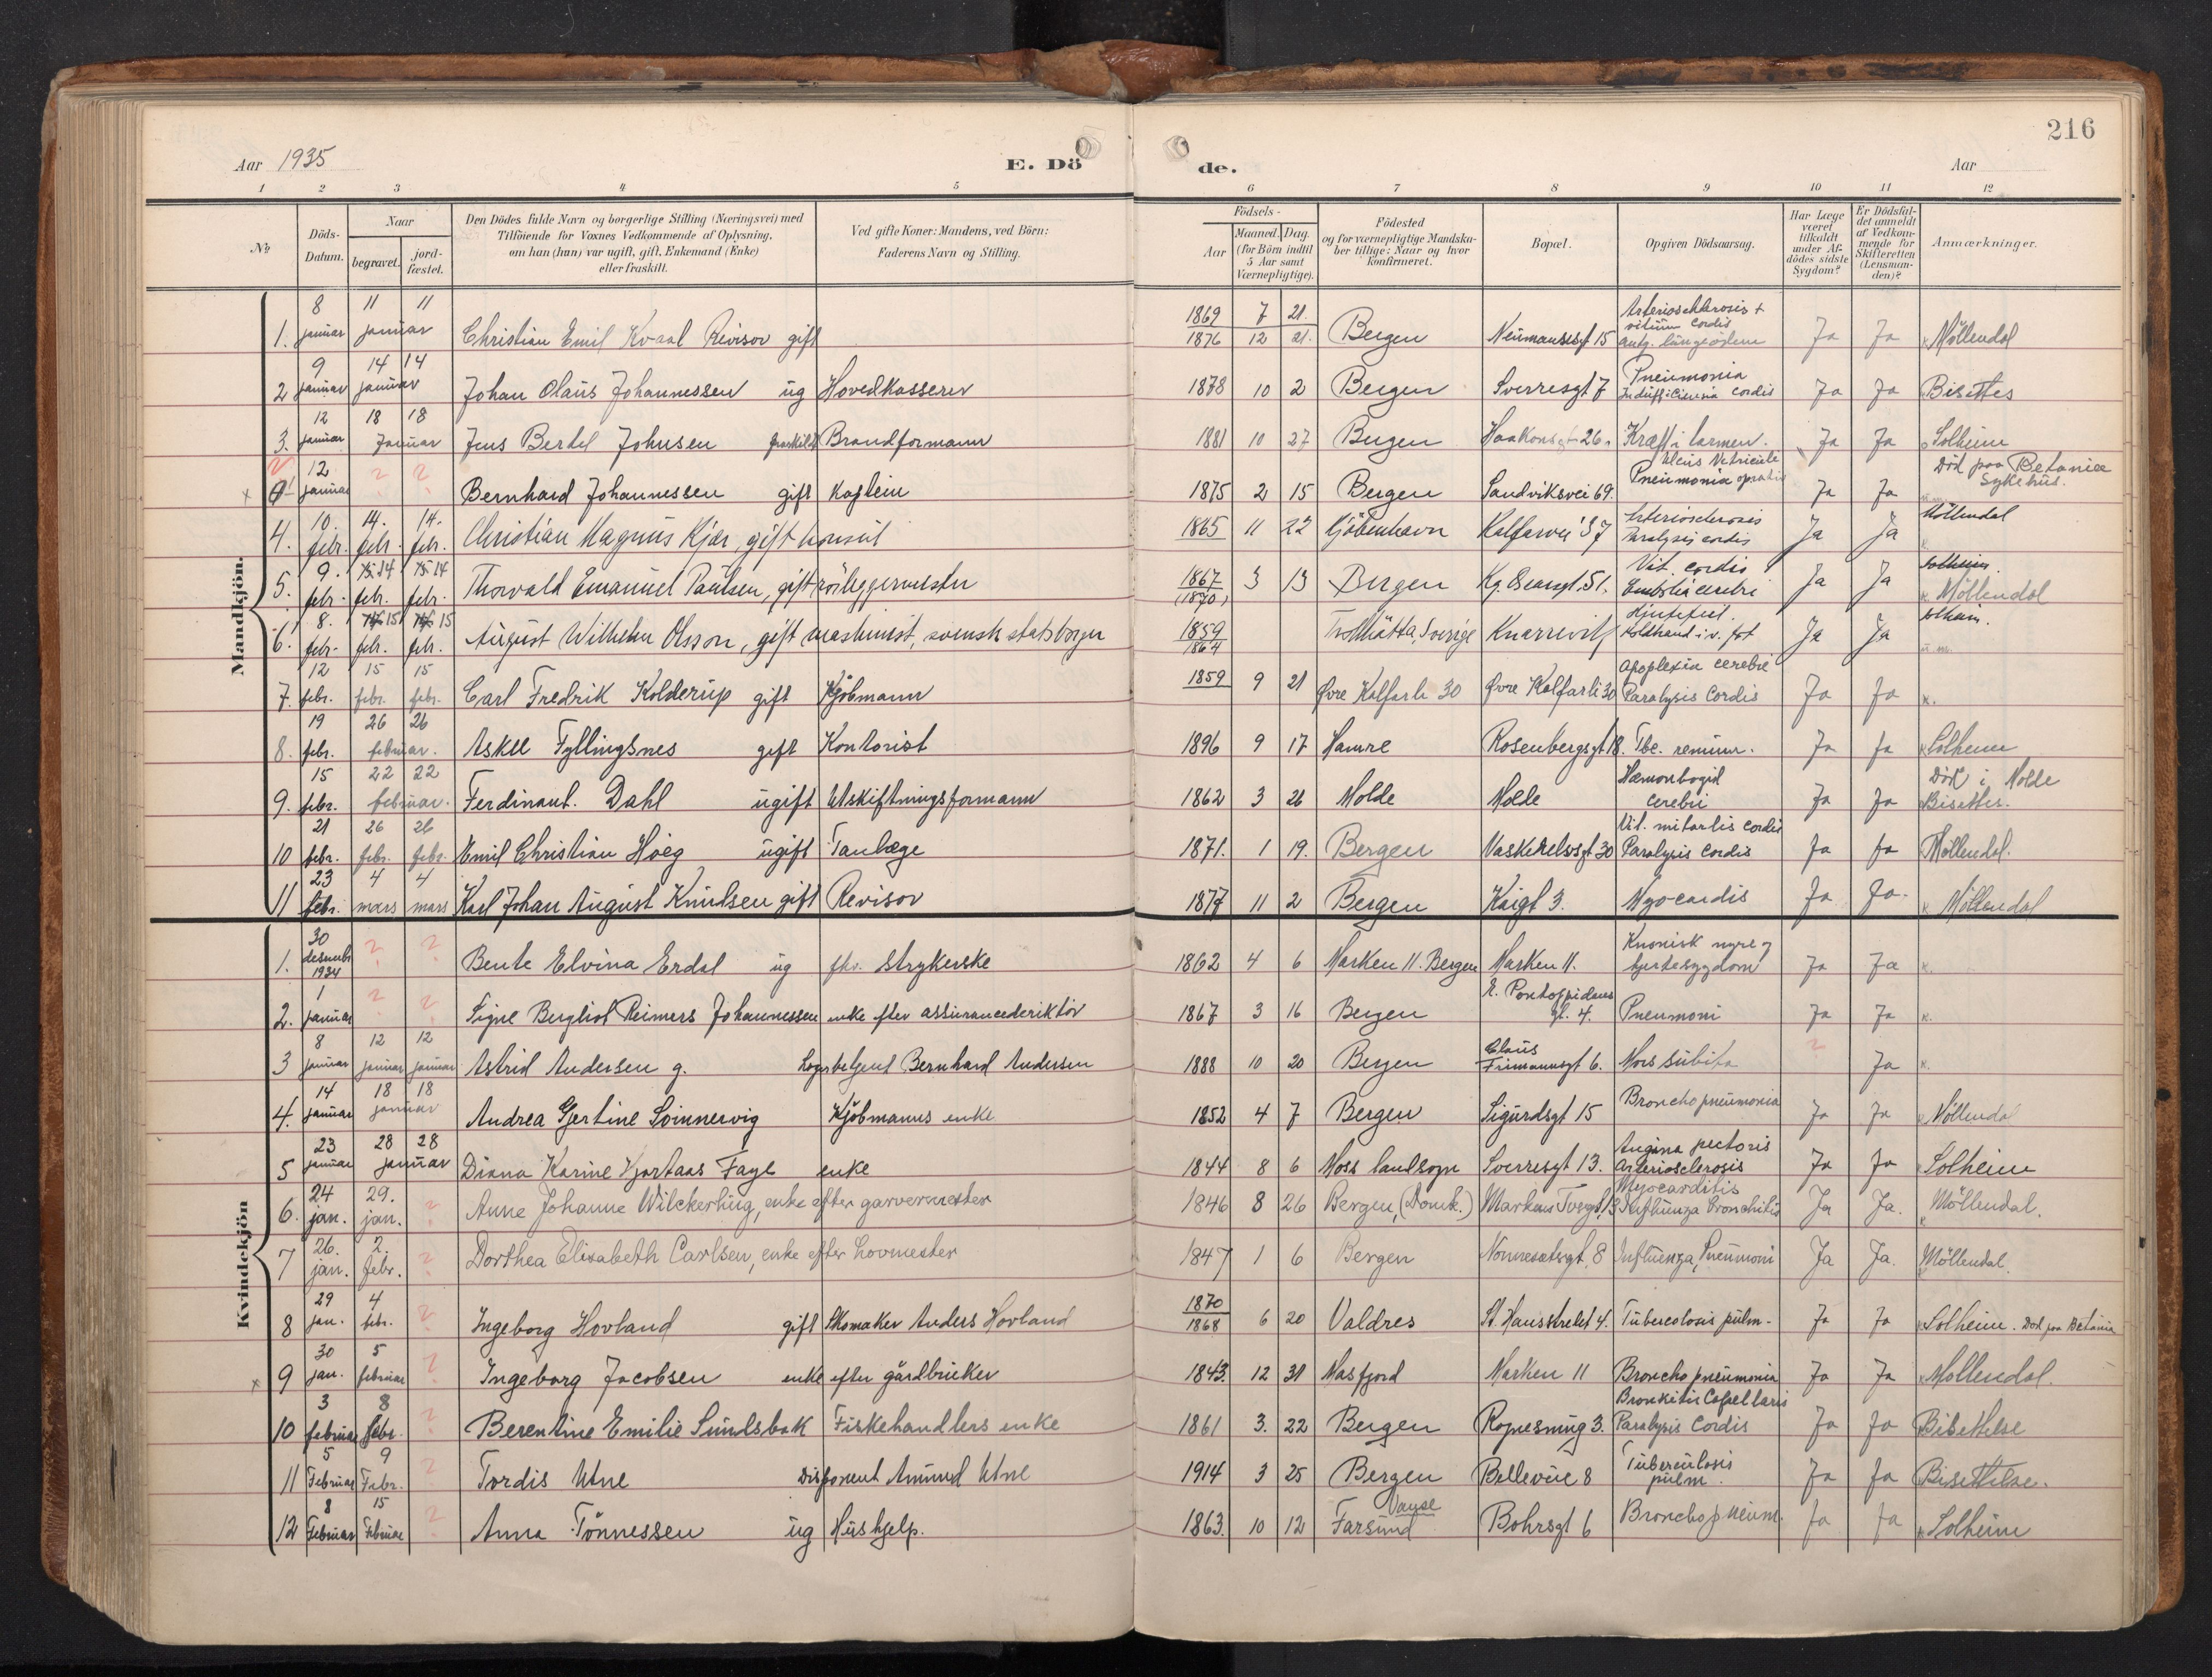 216
Aar 1935
E. Dö
de.
Aar
1 2 3 4 5 6 7 8 9 10 11 12
No
Döds-Datum.
Naar
begravet.
jord-fæstet.
Den Dödes fulde Navn og borgerlige Stilling (Næringsvei) med
Tilföiende for Voxnes Vedkommende af Oplysning,
om han (hun) var ugift, gift, Enkemand (Enke)
eller fraskilt.
Ved gifte Koner: Mandens, ved Börn:
Faderens Navn og Stilling.
Födsels-
Aar
Maaned. Dag.
(for Börn indtil
5 Aar samt
Værnepligtige).
Födested
og for værnepligtige Mandska-
ber tillige: Naar og hvor
konfirmeret.
Bopæl.
Opgiven Dödsaarsag.
Har Læge
været
tilkaldt
under Af-
dödes sidste
Sygdom?
Er Dödsfal-
det anmeldt
af Vedkom-
mende for
Skifteretten
(Lensman-
den)?
Anmærkninger.
Mandkjön.
1. 8 januar 11 11 januar Christian Emil Kvaal Revisor gift 1869 7 21. 1876 12 21. Bergen Neumannsgt 15 Arteriosclerosis + vitium cordis Ja Ja Möllendal
2 9 januar 14 14 januar Johan Olaus Johannessen ug Hovedkasserer 1878 10 2 Bergen Sverresgt 7 Pneumonia cordis Ja Ja Bisættes
3. 12 januar 18 18 januar Jens Bertel Johnsen fraskilt Brandformann 1881 10 27 Bergen Haakonsgt 26 Kræft i tarmen. Ja Ja Solheim
x 12 januar ? ? Bernhard Johannessen gift Kaptein 1875 2 15 Bergen Sandviksvei 69. Pneumonia Ja Ja Död paa Betanien Sykehus.
4. 10. febr. 14. febr. 14. febr. Christian Magnus Kjær, gift konsul 1865 11 22 Kjöbenhavn Kalfarvei 37 Arteriosclerosis Paralysis cordis Ja Ja Möllendal
5. 9. febr. 15 14 febr. 15 14 febr. Thorvald Emanuel Paulsen, gift rörleggermester 1867 (1870) 3 13 Bergen Kg. Oscarsgt. 51. Vit. cordis Embolia cerebri Ja Ja Solheim. Möllendal
6. 8. febr. 15 febr. 15 febr. August Wilhelm Olsson, gift maskinist, svensk statsborger 1859 1864 Trollhätta, Sverige Knarrevik Hjertefeil. Koldbrand i v. fot Ja Ja Solheim.
7. 12 febr. 15 febr. 15 febr. Carl Fredrik Kolderup gift Kjöbmann 1859 9 21 Øvre Kalfarli 30 Øvre Kalfarli 30 Apoplexia cerebri Paralysis Cordis Ja Ja
8. 19 febr. 26 26 februar. Askil Fyllingsnes gift Kontorist 1896 9 17 Hamre Rosenbergsgt 18. Tbc. renium. Ja Ja Solheim
9. 15 febr. 22 22 februar. Ferdinant. Dahl ugift Utskiftningsformann 1862 3 26 Molde Molde Cerebri Ja Ja Död i Molde Bisettes.
10 21 febr. 26 febr. 26 febr. Emil Christian Höeg ugift Tanlæge 1871. 1 19. Bergen Vaskerelvsgt 30 Vit. mitarlis cordis Paralysis cordis Ja Ja Möllendal.
11 23 febr. 4 mars 4 mars Karl Johan August Knudsen gift Revisor 1877 11 2 Bergen Kaigt 3. Myocardis Ja Ja Möllendal
Kvindekjön
1. 30 desembr 1934 ? ? Bente Elvina Erdal ug fhv. strykerske 1862 4 6 Marken 11. Bergen Marken 11. Kronisk nyre og hjertesygdom Ja Ja
2. 1 januar ? ? Signe Bergliot Reimers Johannessen enke efter assurancederiktör 1867 3 16 Bergen E. Pontoppidans gt. 4. Pneumoni Ja Ja
3 8 januar 12 januar 12 januar Astrid Andersen g. Lagerbetjent Bernhard Andersen 1888 10 20 Bergen Claus Frimannsgt 6. Mors subita ? Ja
4. 14 januar 18 18 januar Andrea Gjertine Soinnervig Kjöbmanns enke 1852 4 7 Bergen Sigurdsgt 15 Bronchopneumonia Ja Ja Möllendal
5 23 januar 28 28 januar Diana Karine Kjartaas Faye enke 1844 8 6 Moss landsogn Sverresgt 13. Angina pectoris Arteriosclerosis Ja Ja Solheim
6. 24 jan. 29. jan. ? Anne Johanne Wilckerling, enke efter garvermester 1846 8 26 Bergen, (Domk.) Markens Tvergt. 13 Myocarditis Influenza Bronchitis Ja Ja. Möllendal.
7 26. jan. 2. febr. ? Dorthea Elisabeth Carlsen, enke efter hovmester 1847 1 6 Bergen Nonnesætergt. 8 Influenza, Pneumoni Ja Ja. Möllendal.
8 29 jan. 4 febr. ? Ingeborg Hovland gift Skomaker Anders Hovland 1870 1868 6 20 Valdres St. Hansstredet 4. Tuberculosis pulm. Ja Ja Solheim. Död paa Betania
x 9 30 jan. 5 februar ? Ingeborg Jacobsen enke efter gårdbruker 1843. 12 31 Masfjord Marken 11 Bronchopneumonia Ja Ja Möllendal.
10 3 februar 8 febr. ? Berentine Emilie Sundsbak Fiskehandlers enke 1861 3. 22 Bergen Ropesmug 3. Bronkitis Capellaris Paralysis Cordis Ja Ja Bisettelse
11 5 Februar 9 Febr. ? Tordis Utne Disponent Amund Utne 1914 3 25 Bergen Bellevue 8 Tuberculosis pulm. Ja Ja Bisettelse.
12 8 Februar 15 Februar ? Anna Tönnessen ug Hushjelp. 1863. 10 12 Vanse Farsund Bohrsgt 6 Bronchopneum. Ja Ja Solheim